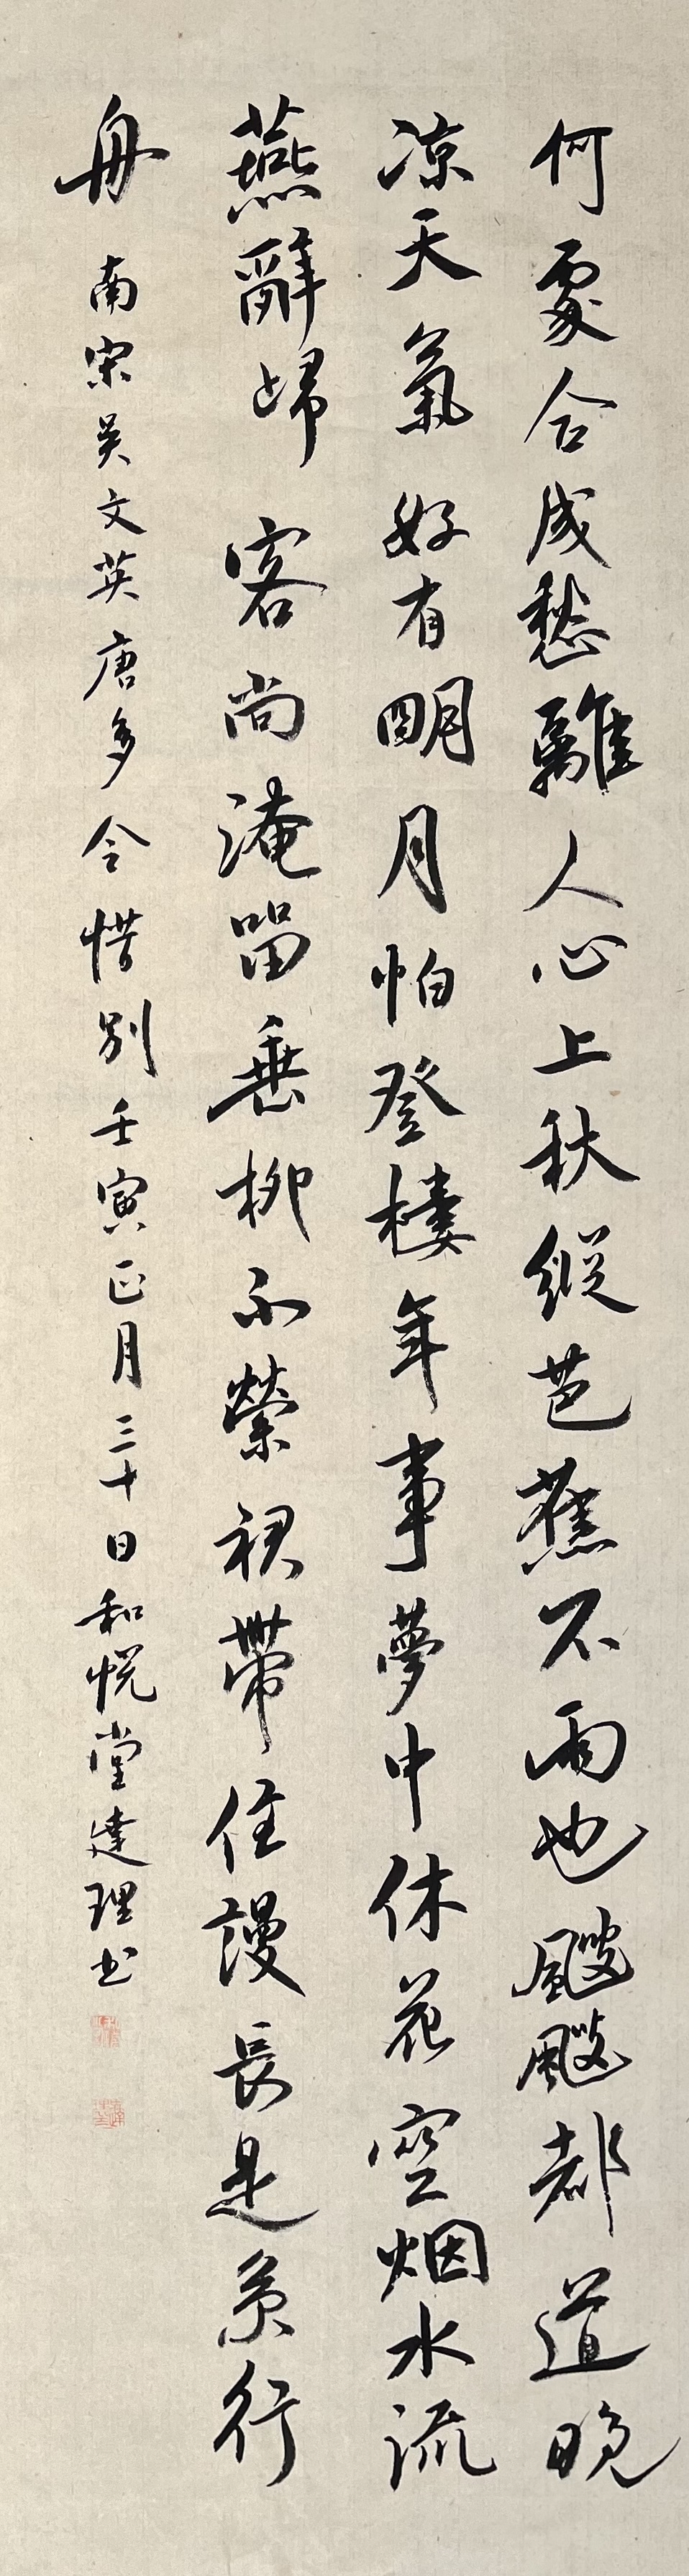 何處合成愁離人心上秋縱芭蕉不雨也颼颼都道晚
涼天氣好有明月怕登樓年事夢中休花空烟水流
燕辭歸客尚淹留垂柳不縈裙帶住謾長是系行
舟
南宋吴文英唐多令惜别壬寅正月三十日和悅堂達理书